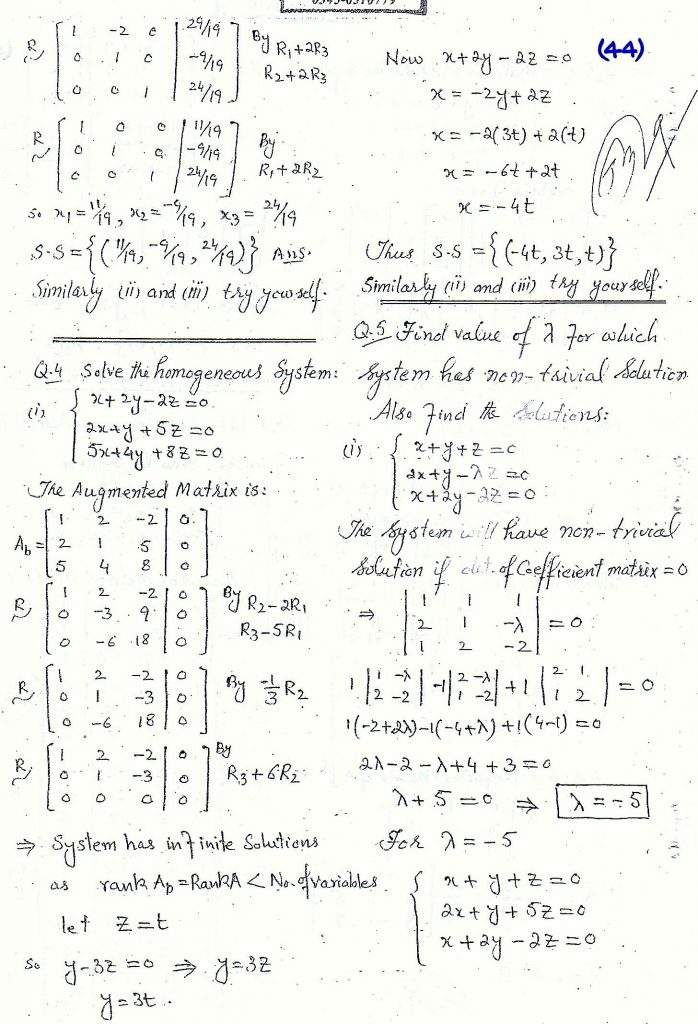 R ~ [ 1 -2 0 | 29/19 ; 0 1 0 | -9/19 ; 0 0 1 | 24/19 ] By R₁+2R₃ R₂+2R₃
R ~ [ 1 0 0 | 11/19 ; 0 1 0 | -9/19 ; 0 0 1 | 24/19 ] By R₁+2R₂
So x₁ = 11/19, x₂ = -9/19, x₃ = 24/19
S.S = {(11/19, -9/19, 24/19)} Ans.
Similarly (ii) and (iii) try yourself.
Q.4 Solve the homogeneous System:
(i) { x+2y-2z=0
2x+y+5z=0
5x+4y+8z=0
The Augmented Matrix is:
A_b = [ 1 2 -2 | 0 ; 2 1 5 | 0 ; 5 4 8 | 0 ]
R ~ [ 1 2 -2 | 0 ; 0 -3 9 | 0 ; 0 -6 18 | 0 ] By R₂-2R₁ R₃-5R₁
R ~ [ 1 2 -2 | 0 ; 0 1 -3 | 0 ; 0 -6 18 | 0 ] By -1/3 R₂
R ~ [ 1 2 -2 | 0 ; 0 1 -3 | 0 ; 0 0 0 | 0 ] By R₃+6R₂
⇒ System has infinite Solutions
as rank A_b = Rank A < No. of variables
let z=t
So y-3z=0 ⇒ y=3z
y=3t.
(44)
Now x+2y-2z=0
x = -2y+2z
x = -2(3t)+2(t)
x = -6t+2t
x = -4t
Thus S.S = {(-4t, 3t, t)}
Similarly (ii) and (iii) try yourself.
Q.5 Find value of λ for which
System has non-trivial Solution
Also find the Solutions:
(i) { x+y+z=0
2x+y-λz=0
x+2y-2z=0
The System will have non-trivial
Solution if det. of Coefficient matrix = 0
⇒ | 1 1 1 ; 2 1 -λ ; 1 2 -2 | = 0
1 | 1 -λ ; 2 -2 | -1 | 2 -λ ; 1 -2 | +1 | 2 1 ; 1 2 | = 0
1(-2+2λ)-1(-4+λ)+1(4-1)=0
2λ-2-λ+4+3=0
λ+5=0 ⇒ λ=-5
For λ=-5
{ x+y+z=0
2x+y+5z=0
x+2y-2z=0